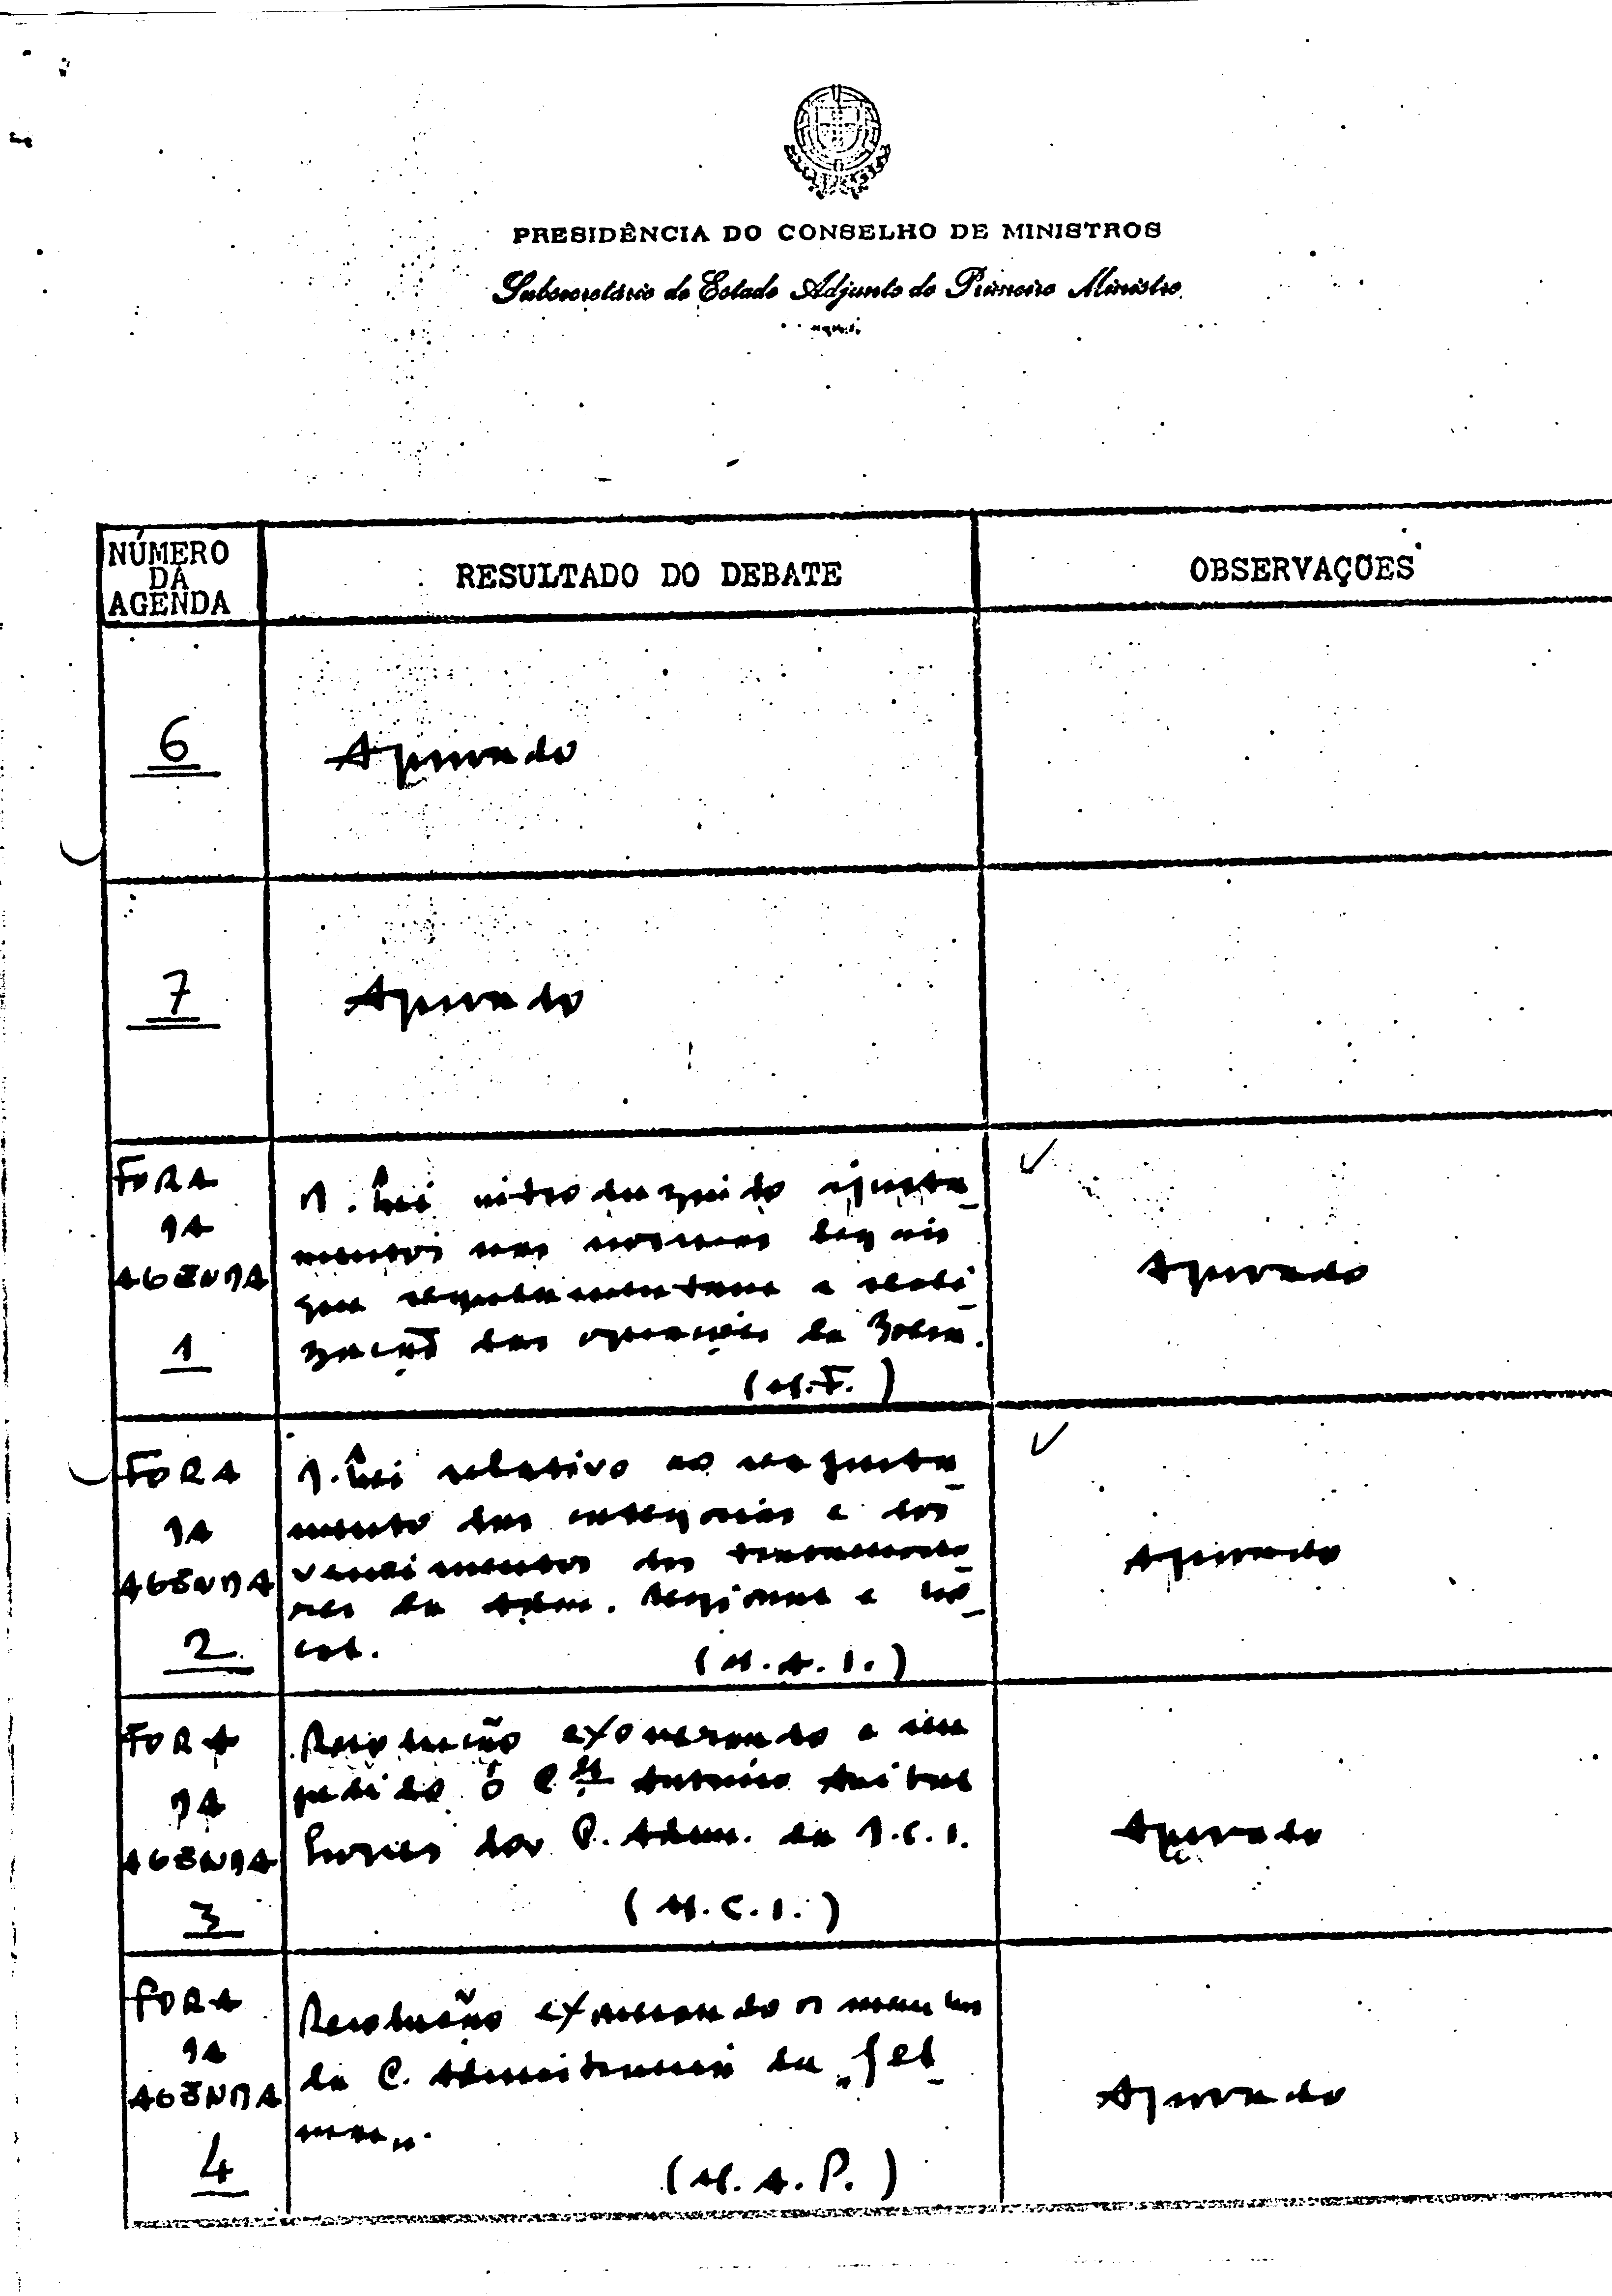 PRESIDÊNCIA DO CONSELHO DE MINISTROS
Subsecretário de Estado Adjunto do Primeiro Ministro
NÚMERO
DA
AGENDA
RESULTADO DO DEBATE
OBSERVAÇÕES
6
Aprovado
7
Aprovado
FORA
DA
AGENDA
1
D. Lei introduzindo ajusta_
mentos nas normas legais
que regulamentam a reali_
zação das operações de Bolsa.
(M.F.)
✓
Aprovado
FORA
DA
AGENDA
2
D. Lei relativo ao reajusta_
mento das categorias e dos
vencimentos dos
da Adm. Regional e Lo_
cal.
(M.A.I.)
✓
Aprovado
FORA
DA
AGENDA
3
Resolução exonerando a seu
pedido o António
da C. Adm. da
(M.C.I.)
Aprovado
FORA
DA
AGENDA
4
Resolução exonerando
da C. Administrativa da
(M.A.P.)
Aprovado